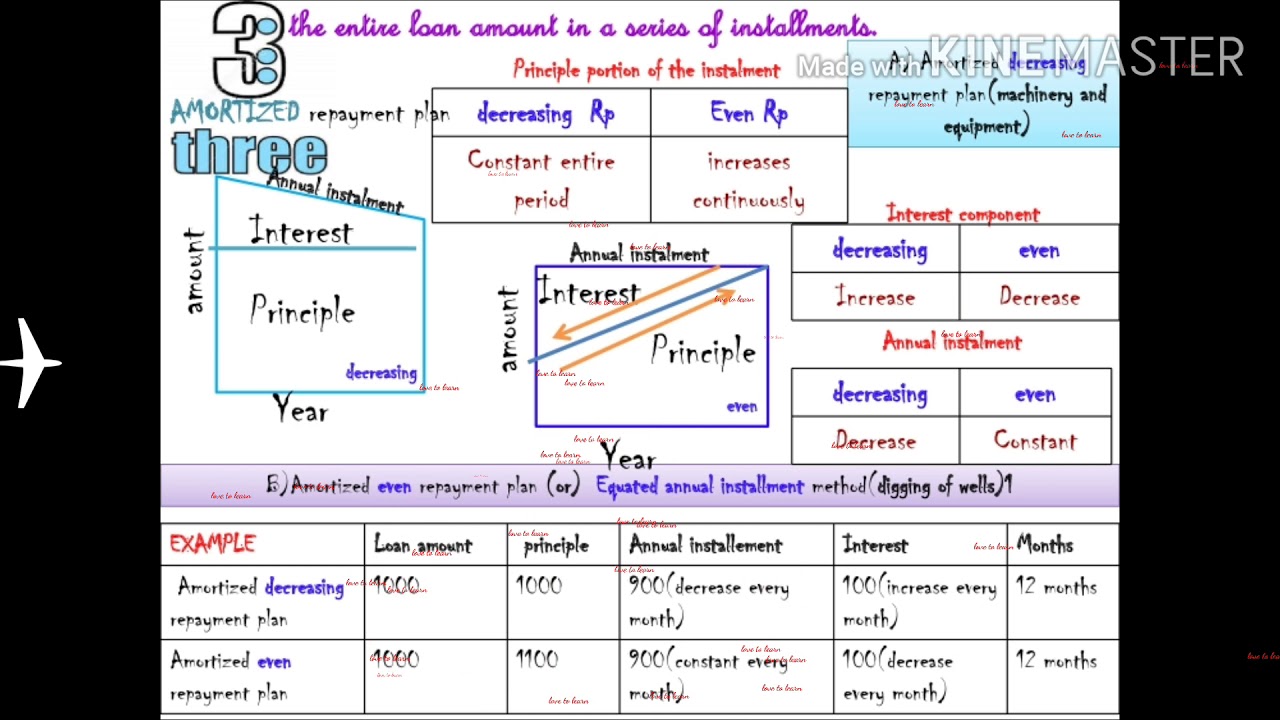 3 the entire loan amount in a series of installments.
Made with KINEMASTER
AMORTIZED repayment plan
three
Principle portion of the instalment
decreasing Rp Even Rp
Constant entire period increases continuously
A) Amortized decreasing
repayment plan(machinery and
equipment)
Annual instalment
Interest
Principle
decreasing
amount
Year
Annual instalment
Interest
Principle
even
amount
Year
Interest component
decreasing even
Increase Decrease
Annual instalment
decreasing even
Decrease Constant
B)Amortized even repayment plan (or) Equated annual installment method(digging of wells)1
EXAMPLE Loan amount principle Annual installement Interest Months
Amortized decreasing 1000 1000 900(decrease every 100(increase every 12 months
repayment plan month) month)
Amortized even 1000 1100 900(constant every 100(decrease 12 months
repayment plan month) every month)
love to learn